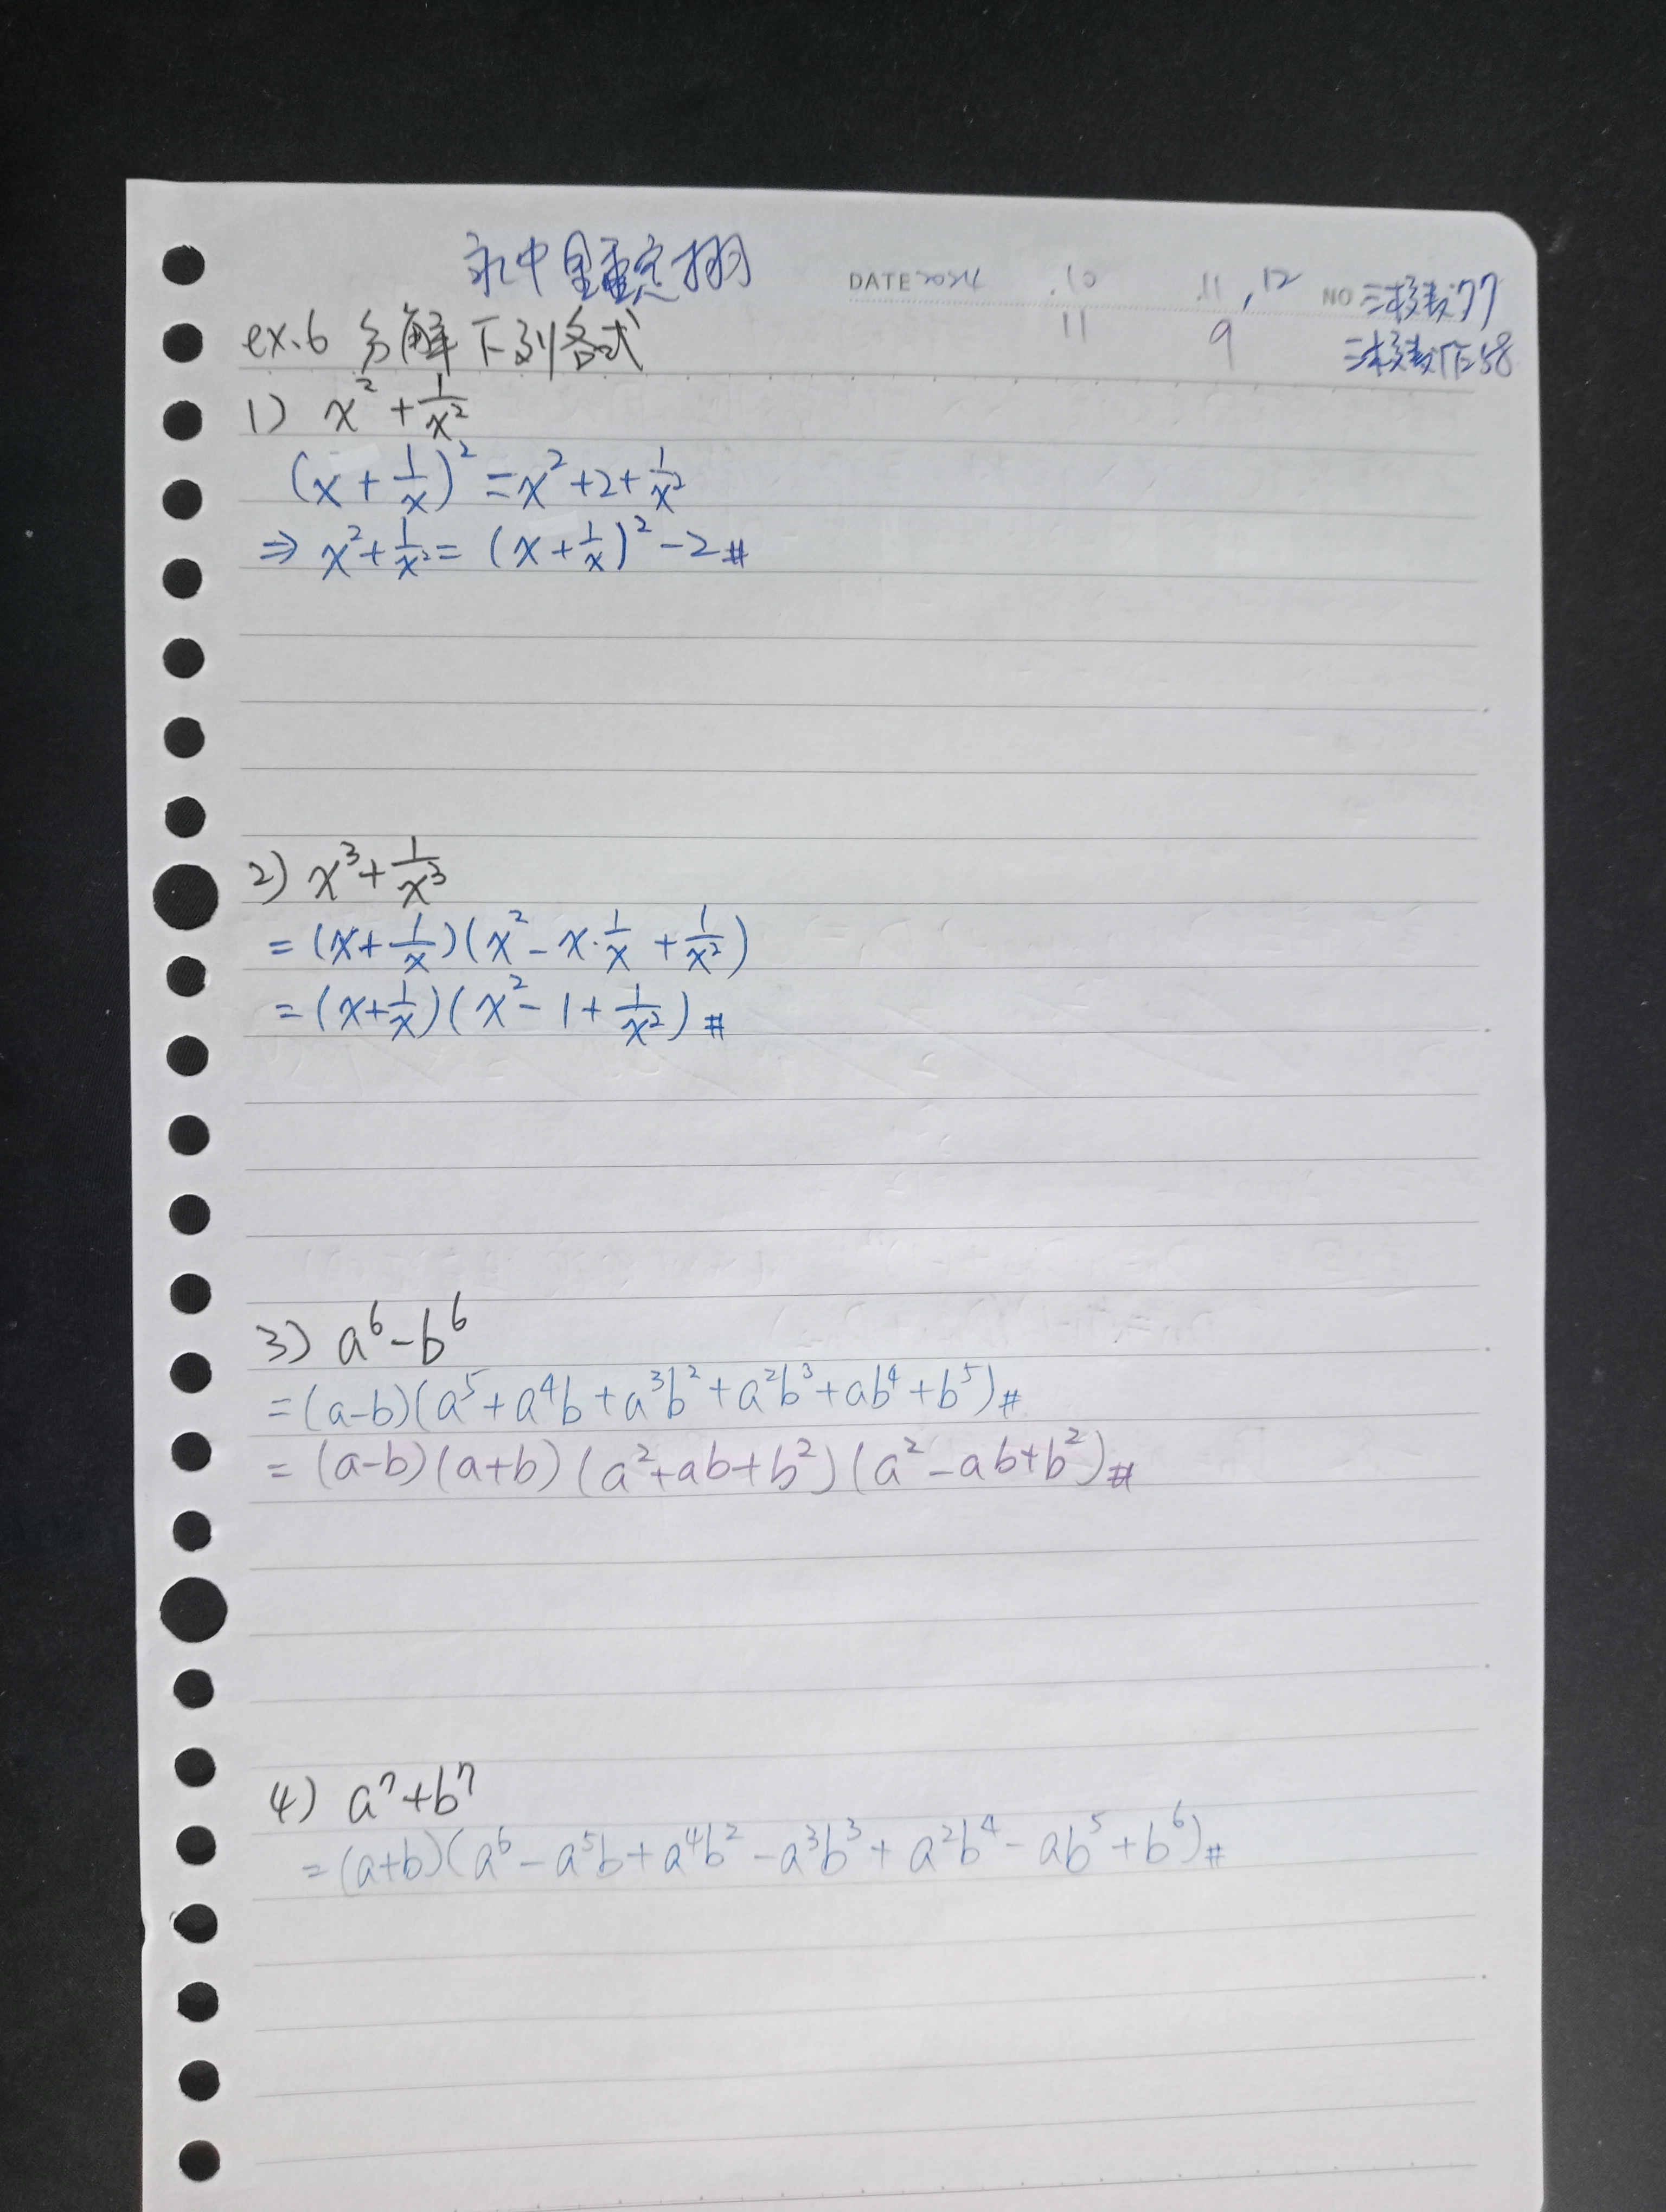 永中
DATE 2024 .10 .11 , 12 NO 三校表:77
11 9 三校表下:58
ex.6 分解下列各式
1) x² + 1/x²
(x + 1/x)² = x² + 2 + 1/x²
⇒ x² + 1/x² = (x + 1/x)² - 2 #
2) x³ + 1/x³
= (x + 1/x)(x² - x·1/x + 1/x²)
= (x + 1/x)(x² - 1 + 1/x²) #
3) a⁶ - b⁶
= (a-b)(a⁵ + a⁴b + a³b² + a²b³ + ab⁴ + b⁵) #
= (a-b)(a+b)(a² + ab + b²)(a² - ab + b²) #
4) a⁷ + b⁷
= (a+b)(a⁶ - a⁵b + a⁴b² - a³b³ + a²b⁴ - ab⁵ + b⁶) #